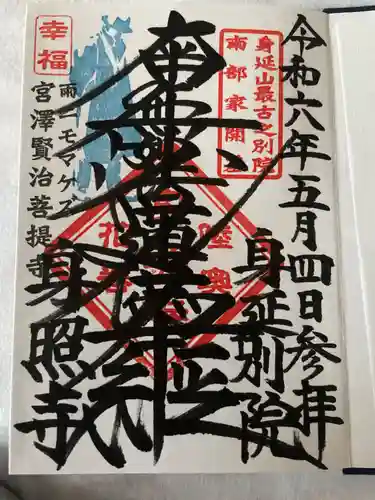 令和六年五月四日参拝
身延山最古之別院
南部家開基
身延別院
南無妙法蓮華経
陸奥
花巻
幸福
雨ニモマケズ
宮澤賢治菩提寺
身照寺